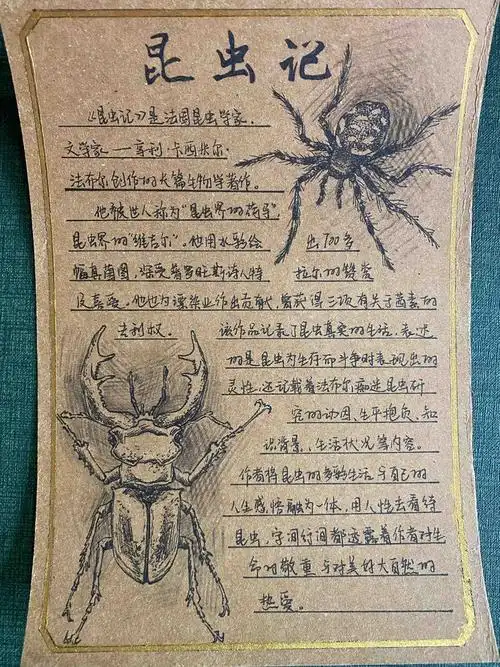 昆虫记
《昆虫记》是法国昆虫学家、
文学家——亨利·卡西米尔·
法布尔创作的长篇生物学著作。
他被世人称为"昆虫界的荷马",
昆虫界的"维吉尔"。他用水彩绘 出700多
幅真菌图,深受普罗旺斯诗人特 拉尔的赞赏
及喜爱。他也为漂染业作出贡献,曾获得三项有关于茜素的
专利权。 该作品记录了昆虫真实的生活,表述
的是昆虫为生存而斗争时表现出的
灵性,还记载着法布尔痴迷昆虫研
究的动因、生平抱负、知
识背景、生活状况等内容。
作者将昆虫的多彩生活与自己的
人生感悟融为一体,用人性去看待
昆虫,字里行间都透露着作者对生
命的敬重与对美好大自然的
热爱。